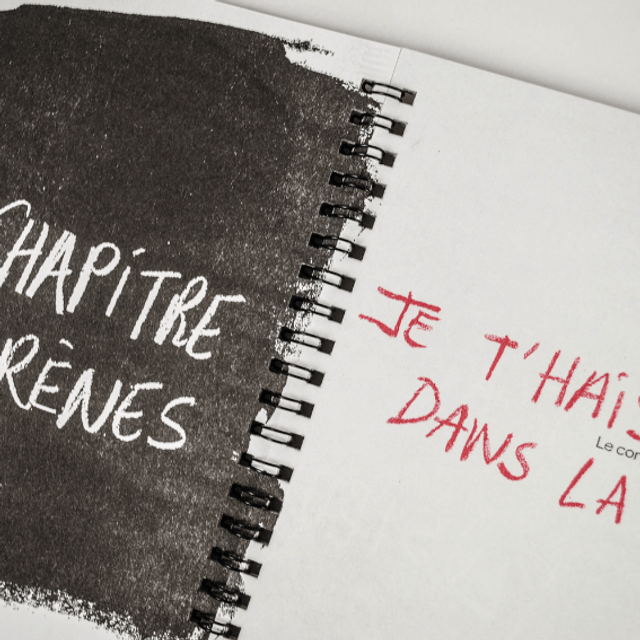 CHAPITRE
RÈNES
JE T'HAÏS
DANS LA
Le cor